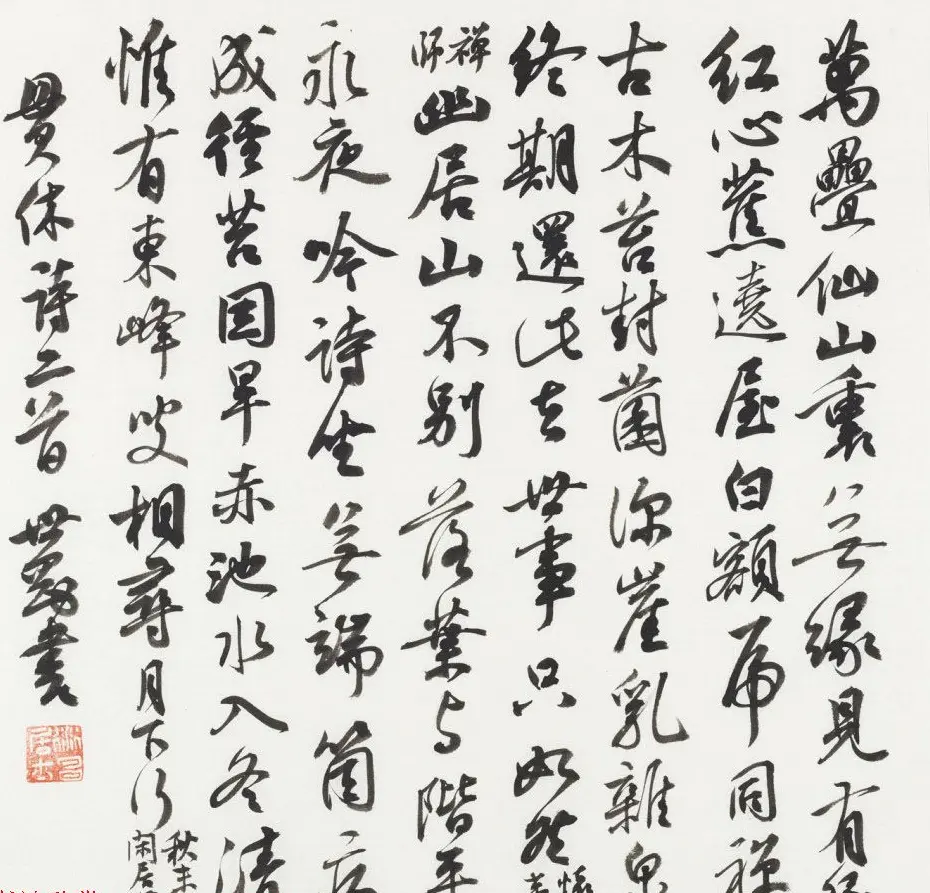 萬疊仙山裏無緣見有緣
紅心蕉遶屋白額虎同禪
古木苔封菌深崖乳雜泉
終期還此去世事只如然懷
禪師幽居山不別落葉與階平
永夜吟詩坐無端箇病
成徑苔因旱赤池水入冬清
惟有東峰叟相尋月下行秋末閑居
貫休詩二首 世勣書